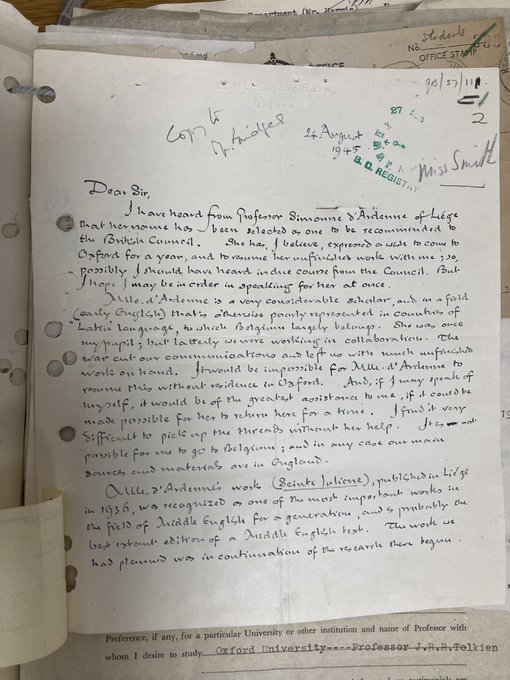 Department (Mr. Harris)
Students
No.
OFFICE STAMP
OFFICE
Oxford
27
B.C. REGISTRY
2
Copy to
Mr Bridges
24 August
1945
Miss Smith
Dear Sir,
I have heard from Professor Simonne d'Ardenne of Liége
that her name has been selected as one to be recommended to
the British Council. She has, I believe, expressed a wish to come to
Oxford for a year, and to resume her unfinished work with me; so,
possibly I should have heard in due course from the Council. But
I hope I may be in order in speaking for her at once.
Mlle. d'Ardenne is a very considerable scholar, and in a field
(early English) that is otherwise poorly represented in countries of
Latin language, to which Belgium largely belongs. She was once
my pupil; but latterly we were working in collaboration. The
war cut our communications and left us with much unfinished
work on hand. It would be impossible for Mlle. d'Ardenne to
resume this without residence in Oxford. And, if I may speak of
myself, it would be of the greatest assistance to me, if it could be
made possible for her to return here for a time. I find it very
difficult to pick up the threads without her help. It is not
possible for me to go to Belgium; and in any case our main
sources and materials are in England.
Mlle. d'Ardenne's work (Seinte Juliene), published in Liége
in 1936, was recognized as one of the most important works in
the field of Middle English for a generation, and is probably the
best extant edition of a Middle English text. The work we
had planned was in continuation of the research there begun.
Preference, if any, for a particular University or other institution and name of Professor with
whom I desire to study Oxford University----Professor J.R.R.Tolkien